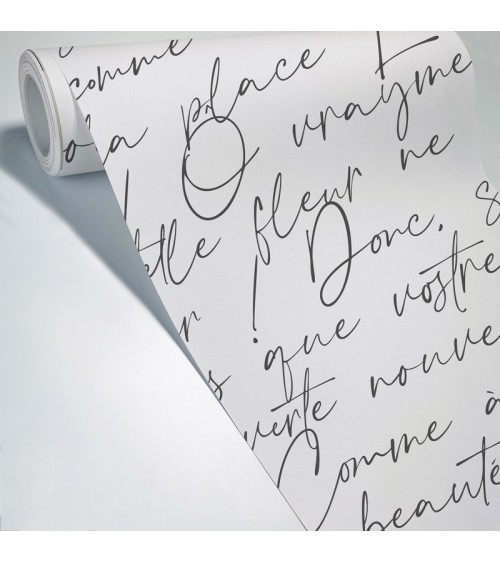 comme
la place
! O vrayme
telle fleur ne
! Donc, s
que vostre
verte nouve
Comme à
beauté